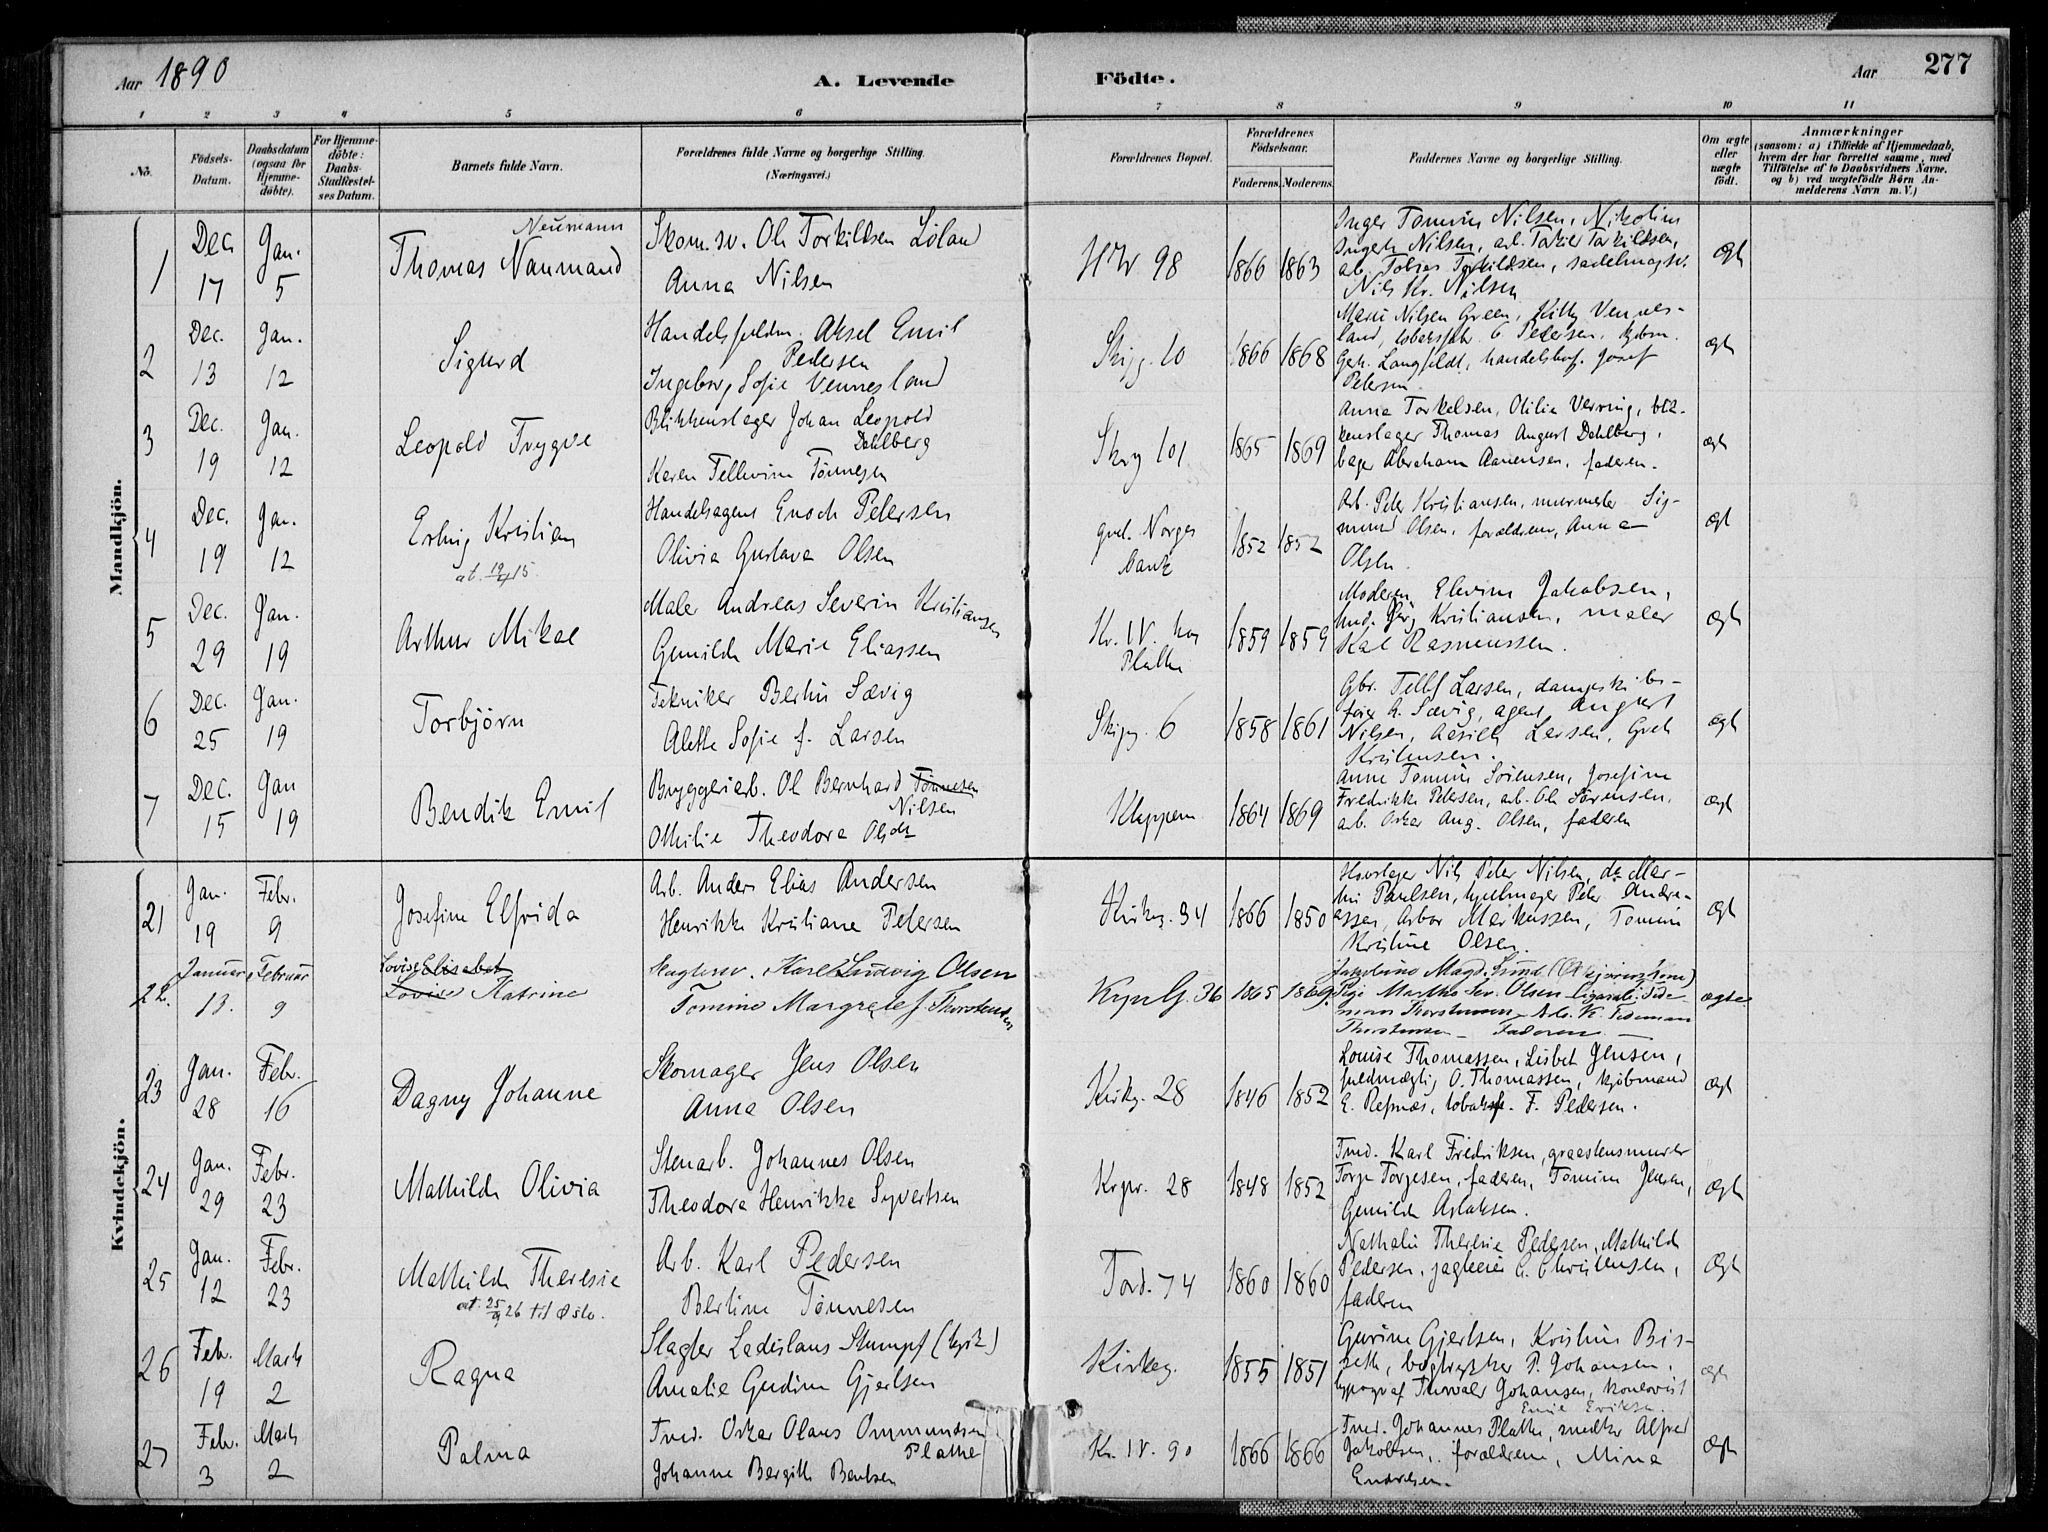 Aar 1890
A. Levende
Födte.
Aar
277
1 2 3 4 5 6 7 8 9 10 11
No.
Födsels-
Datum.
Daabsdatum
(ogsaa for
Hjemme-
döbte).
For Hjemme-
döbte:
Daabs-
Stadfæstel-
ses Datum.
Barnets fulde Navn.
Forældrenes fulde Navne og borgerlige Stilling.
(Næringsvei.)
Forældrenes Bopæl.
Forældrenes
Födselsaar.
Faderens. Moderens.
Faddernes Navne og borgerlige Stilling.
Om ægte
eller
uægte
födt.
Anmærkninger
(saasom: a) i Tilfælde af Hjemmedaab,
hvem der har forrettet samme, med
Tilföielse af to Daabsvidners Navne,
og b) ved uægtefödte Börn An-
melderens Navn m. V.)
Mandkjön.
1
Dec. 17
Jan. 5
Neumann
Thomas Naumand
Skom.sv. Ole Torkildsen Löland
Anna Nilsen
98
1866 1863
Inger Tomine Nilsen, Nikoline
Nilsen, arb. Torkildsen,
arb. Tobias Torkildsen, sadelmagsv.
Nils Kr. Nilsen
ægte
2
Dec. 13
Jan. 12
Sigurd
Handelsfuldm. Aksel Emil
Pedersen
Ingeborg Sofie Vennesland
Skipg. 10
1866 1868
Marie Nilsen Green, Kitty Vennes-
land, Pedersen, kjöbm.
Langfeldt, handelsbef. Josef
Petersen
ægte
3
Dec. 19
Jan. 12
Leopold Trygve
Blikkenslager Johan Leopold
Dahlberg
Karen Tellevine Tönnesen
101
1865 1869
Anna Torkelsen, Otilie Verring, blik-
kenslager Thomas August Dahlberg,
bager Abraham Aanensen, faderen.
ægte
4
Dec. 19
Jan. 12
Erling Kristian
Handelsagent Enoch Petersen
Olivia Gustava Olsen
Norges
Bank
1852 1852
Arb. Peter Kristiansen, murmester Sig-
mund Olsen, forældrene, Anna
Olsen.
ægt
5
Dec. 29
Jan. 19
Arthur Mikal
Maler Andreas Severin Kristiansen
Gunilde Marie Eliassen
Kr. IV. hos
Plathe
1859 1859
Moderen, Elevine Jakobsen,
Kristiansen, maler
Karl Rasmussen.
ægte
6
Dec. 25
Jan. 19
Torbjörn
Tekniker Bertin Sævig
Alette Sofie f. Larsen
Skipg. 6
1858 1861
Gbr. Tellef Larsen, dampskibs-
förer A. Sævig, agent August
Nilsen, Larsen,
Kristensen.
ægte
7
Dec. 15
Jan 19
Bendik Emil
Bryggeriarb. Ole Bernhard Tönnesen
Nilsen
Othilie Theodora Olsdtr
Kleppen
1864 1869
Anne Tomine Sörensen, Josefine
Fredrikke Petersen, arb. Ole Sörensen,
arb. Oskar Aug. Olsen, faderen
ægte
Kvindekjön.
21
Jan. 19
Febr. 9
Josefine Elfrida
Arb. Anders Elias Andersen
Henrikke Kristiane Petersen
Kirkeg. 34
1866 1850
Hovslager Nils Peter Nilsen, do. Mar-
tin Paulsen, hjulmager Peter Andre-
assen, Markussen, Tomine
Kristine Olsen.
ægte
22.
Januar 13.
Februar 9
Lovise Elisabet
Lovise Katrine
Slagtersv. Karl Ludvig Olsen
Tomine Margrete f. Thorstensen
Krpr G. 36
1865 1869
Josefine Magd. Lund
Pige Martha Sev. Olsen
Thorstensen Tideman
Thorstensen - Faderen
ægte
23
Jan. 28
Febr. 16
Dagny Johanne
Skomager Jens Olsen
Anna Olsen
Kirkeg. 28
1846 1852
Louise Thomassen, Lisbet Jensen,
fuldmægtig O. Thomassen, kjöbmand
E. Repnæs, F. Pedersen.
ægte
24
Jan. 29
Febr. 23
Mathilde Olivia
Stenarb. Johannes Olsen
Theodora Henrikke Syvertsen
Krpr. 28
1848 1852
Tmd. Karl Fredriksen, graastensmurer
Torje Torgesen, faderen, Tomine Jensen,
Gunilde Aslaksen.
ægte
25
Jan. 12
Febr. 23
Mathilde Theresie
at. 25/9 26 til Oslo.
Arb. Karl Pedersen
Bertine Tönnesen
Tord. 74
1860 1860
Nathalie Theresie Pedersen, Mathilde
Pedersen, Christensen,
faderen
ægte
26
Feb. 19
Marts 2
Ragna
Slagter Ladislaus Stumpf (tysk)
Amalie Gudine Gjertsen
Kirkeg.
1855 1851
Gurine Gjertsen, Kristine Bis-
seth, bogtrykker P. Johansen,
typograf Thorvald Johansen,
Emil Eriksen.
ægte
27
Feb. 3
Marts 2
Palma
Tmd. Oskar Olaus Ommundsen
Plathe
Johanne Bergitte Bentsen
Kr. IV. 90
1866 1866
Tmd. Johannes Plathe, snedker Alfred
Jakobsen, forældrene, Mina
Endresen.
ægte